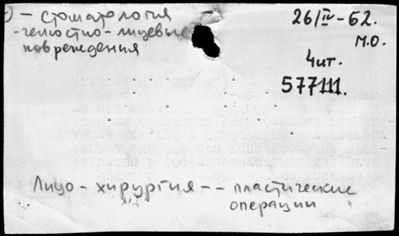 – стоматология
-челюстно-лицевые
повреждения
26/IV-62.
М.О.
Чит.
577111.
Лицо – хирургия -- пластические
операции